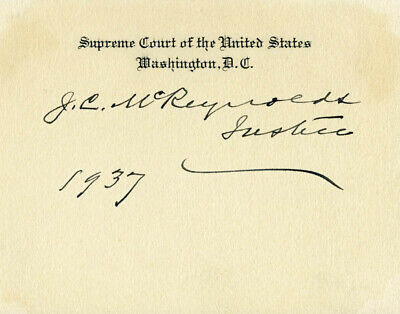 Supreme Court of the United States
Washington, D.C.
J.C. McReynolds
Justice
1937